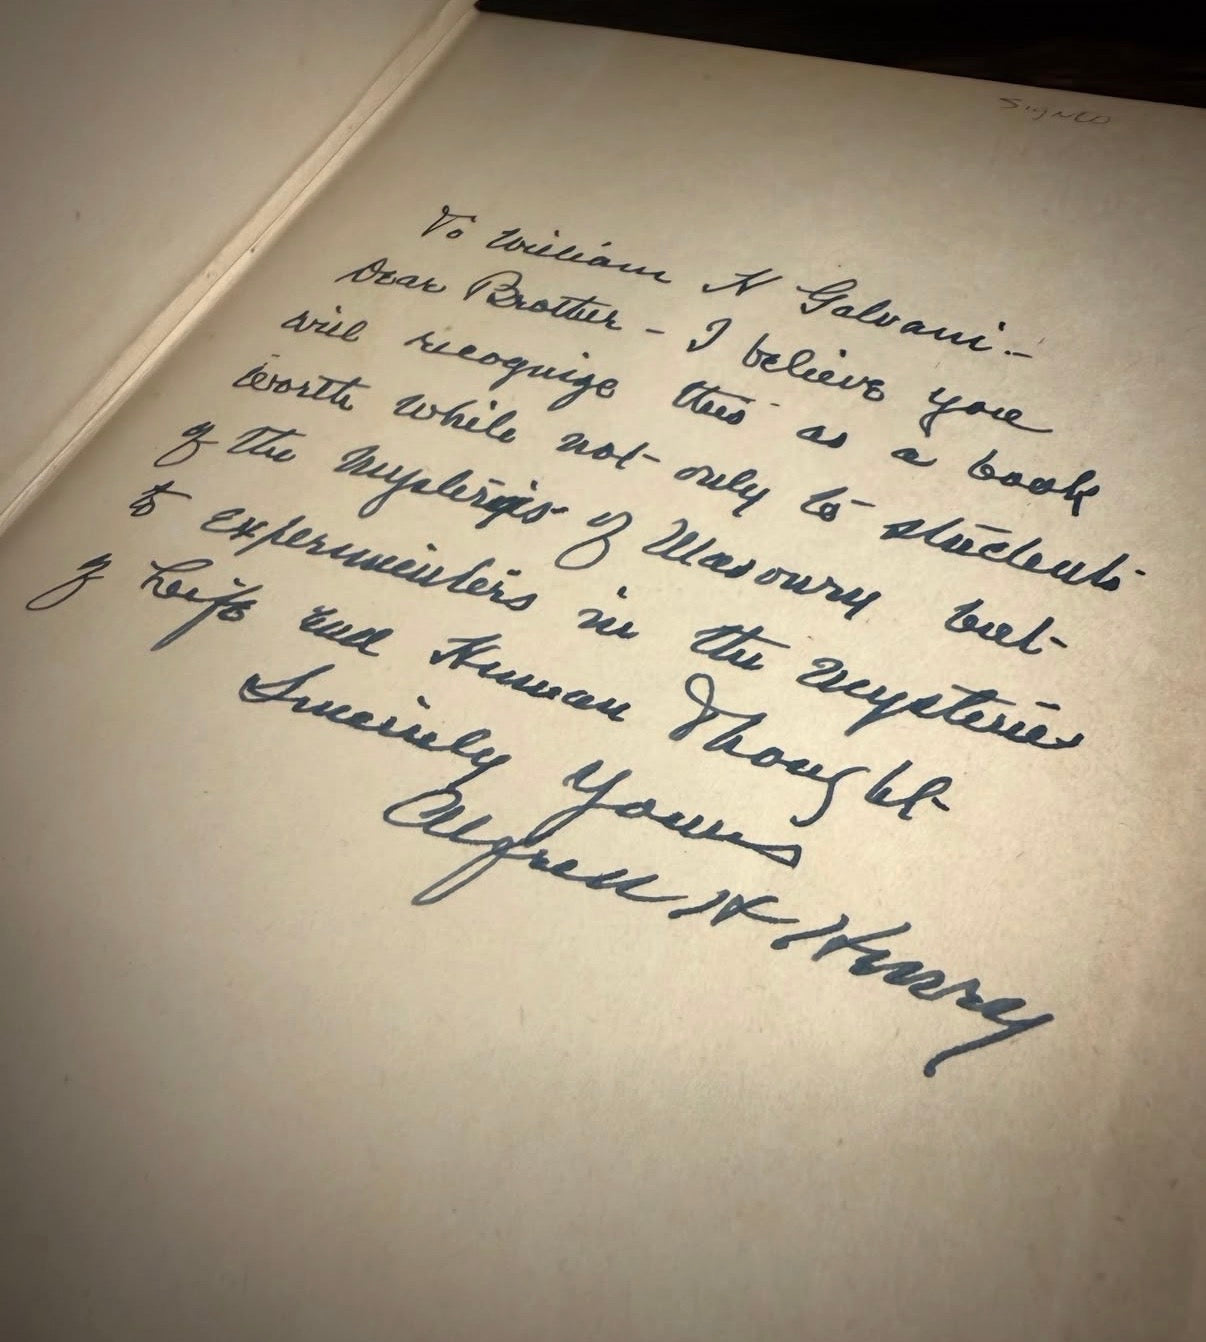 SIGNED
To William H Galvani.-
Dear Brother - I believe you
will recognize this as a book
worth while not only to students
of the Mysteries of Masonry but
to experimenters in the Mysteries
of Life and Human Thought
Sincerely Yours
Alfred H Henry